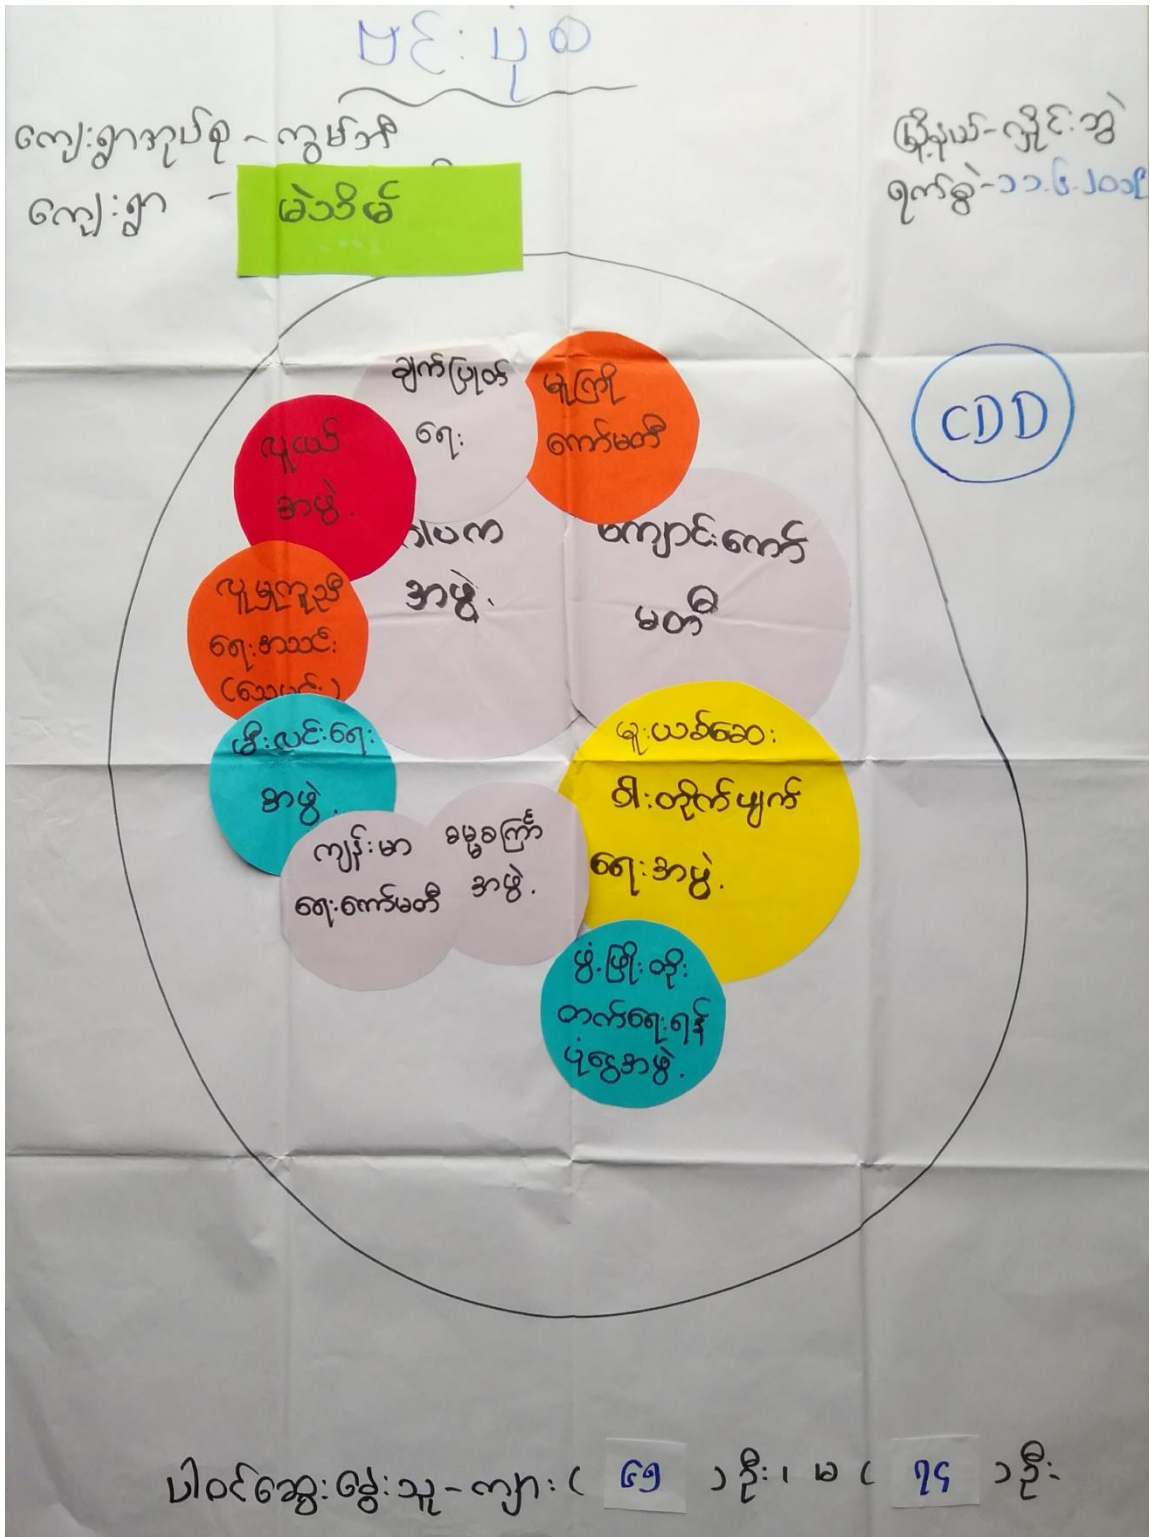 ဗင်းပုံစ
ကျေးရွာအုပ်စု - ကွမ်ဘီ
မြို့နယ်-လှိုင်းဘွဲ
ကျေးရွာ -
မဲသိမ်
ရက်စွဲ-၁၁.၆.၂၀၁၉
CDD
ချက်ပြုတ်
ရေး
မူကြို
ကော်မတီ
လူငယ်
အဖွဲ့
အဖွဲ့
ကျောင်းကော်
မတီ
လူမှုကူညီ
ရေးအသင်း
မီးလင်းရေး
အဖွဲ့
မူးယစ်ဆေး
ဝါးတိုက်ဖျက်
ရေးအဖွဲ့
ကျန်းမာ
ရေးကော်မတီ
ဓမ္မစကြာ
အဖွဲ့
ဖွံ့ဖြိုးတိုး
တက်ရေးရန်
ပုံငွေအဖွဲ့
ပါဝင်ဆွေးနွေးသူ-ကျား ( ၆၅ ) ဦး၊ မ ( ၇၄ ) ဦး